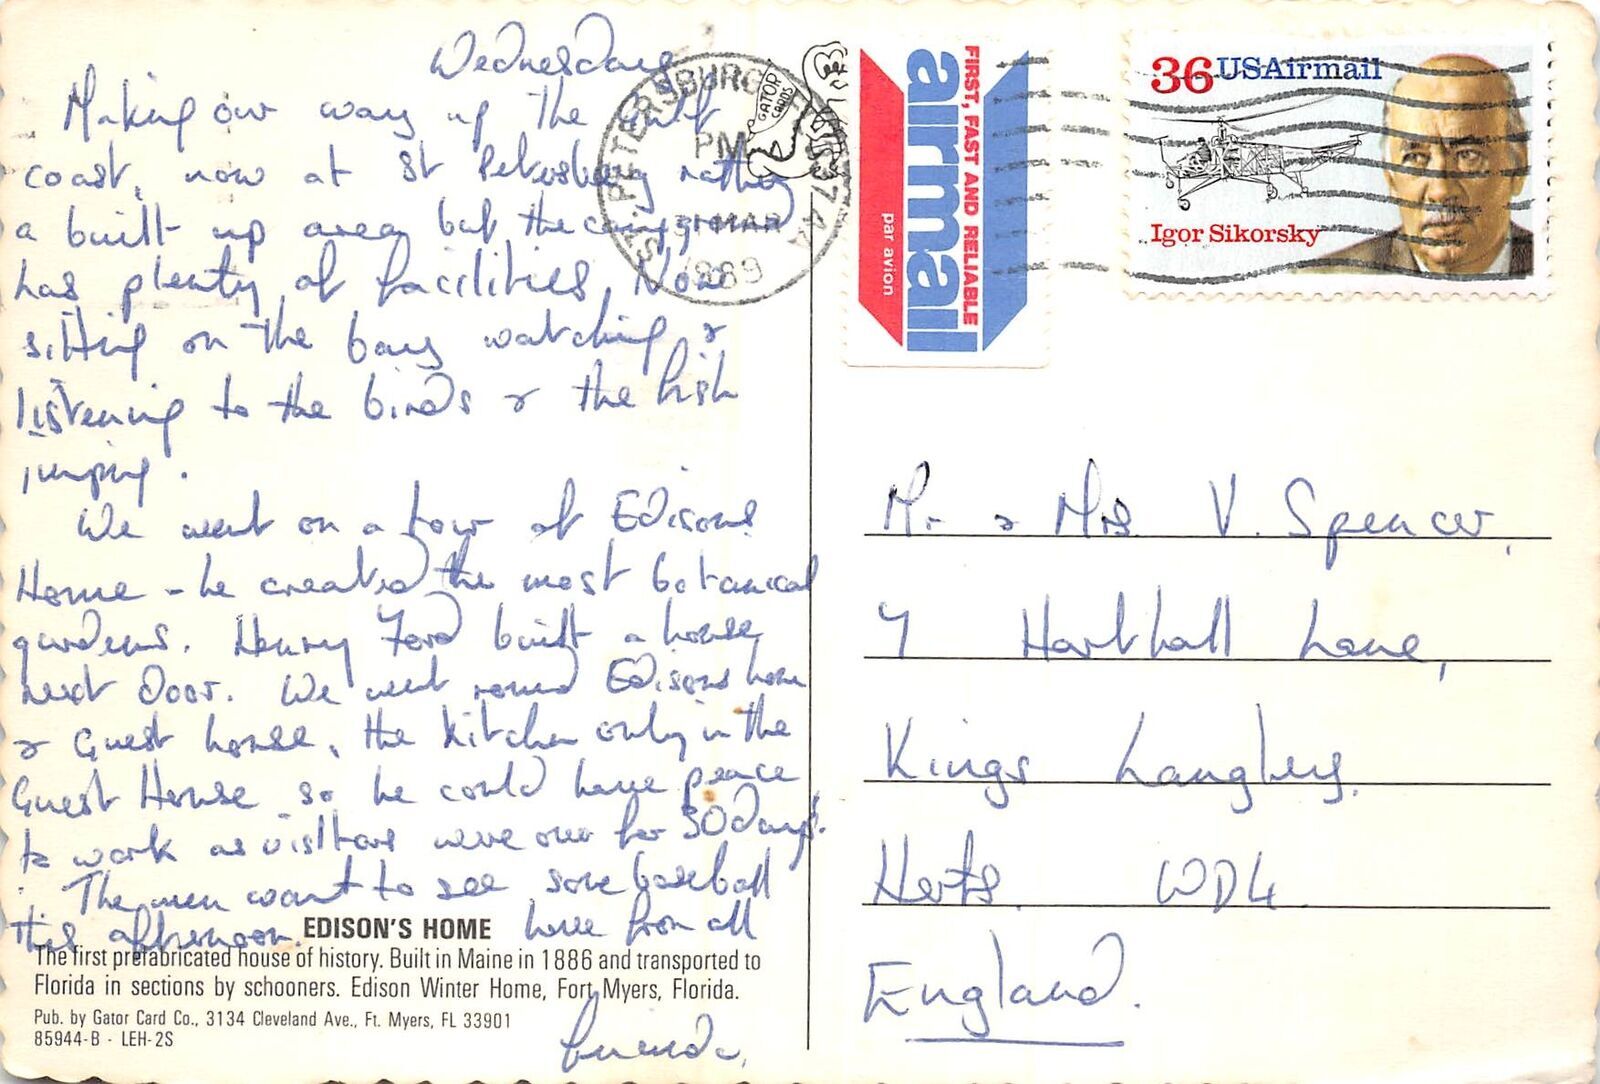 Wednesday
Making our way up the Gulf
coast, now at St Petersburg rather
a built up area but the campground
has plenty of facilities. Now
sitting on the bay watching &
listening to the birds & the fish
jumping.
We went on a tour of Edisons
Home - he created the most botanical
gardens. Henry Ford built a house
next door. We went round Edisons home
& Guest house, the kitchen only in the
Guest House so he could have peace
to work as visitors were over for 30 days.
The men want to see some baseball
this afternoon.
love from all
EDISON'S HOME
The first prefabricated house of history. Built in Maine in 1886 and transported to
Florida in sections by schooners. Edison Winter Home, Fort Myers, Florida.
Pub. by Gator Card Co., 3134 Cleveland Ave., Ft. Myers, FL 33901
85944-B - LEH-2S
GATOR
CARDS
ST. PETERSBURG, FL 337 4A
PM
31 MAR
1989
FIRST, FAST AND RELIABLE
airmail
par avion
36 USAirmail
Igor Sikorsky
Mr. & Mrs V. Spencer,
7 Hartshall Lane,
Kings Langley.
Herts. WD4.
England.